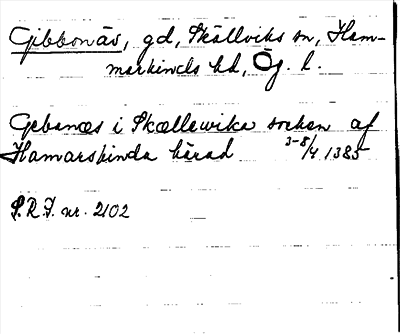 Gibbonäs, gd, Skällviks sn, Ham-
markinds hd, Ög. l.
Gebanæs i Skællewika sochen af
Hamarskinda härad 3-8/4 1385
S.R.P. nr. 2102